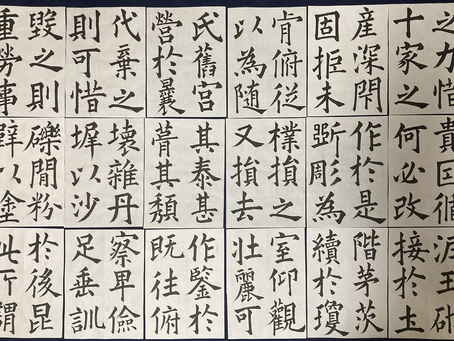 之力惜
十家之
産深閇
固拒未
肯俯從
以為隨
氏舊宮
營於曩
代棄之
則可惜
毀之則
重勞事
貴因循
何必改
作於是
斲彫為
樸損之
又損去
其泰甚
葺其頹
壞雜丹
墀以沙
礫閒粉
壁以塗
泥玉砌
接於土
階茅茨
續於瓊
室仰觀
壯麗可
作鑒於
既往俯
察卑儉
足垂訓
於後昆
此所謂